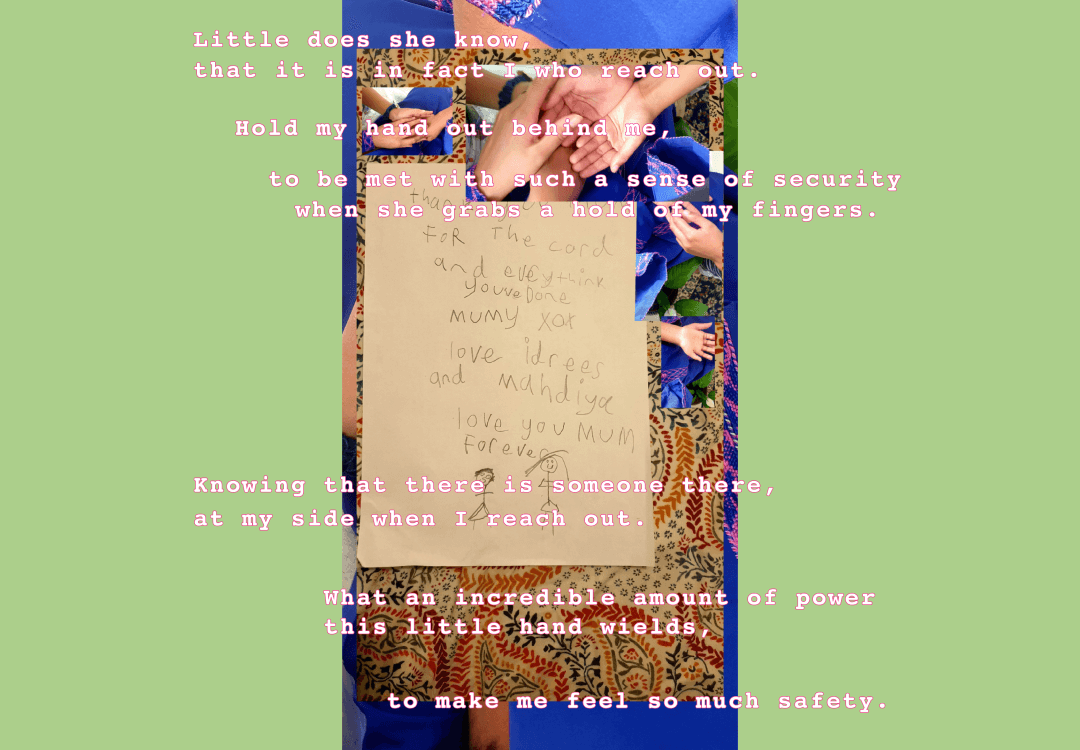 Little does she know,
that it is in fact I who reach out.
Hold my hand out behind me,
to be met with such a sense of security
when she grabs a hold of my fingers.
thank you
FoR The card
and eveythink
youve Done
MUMY xox
love idrees
and Mahdiya
love you MUM
Forever
Knowing that there is someone there,
at my side when I reach out.
What an incredible amount of power
this little hand wields,
to make me feel so much safety.